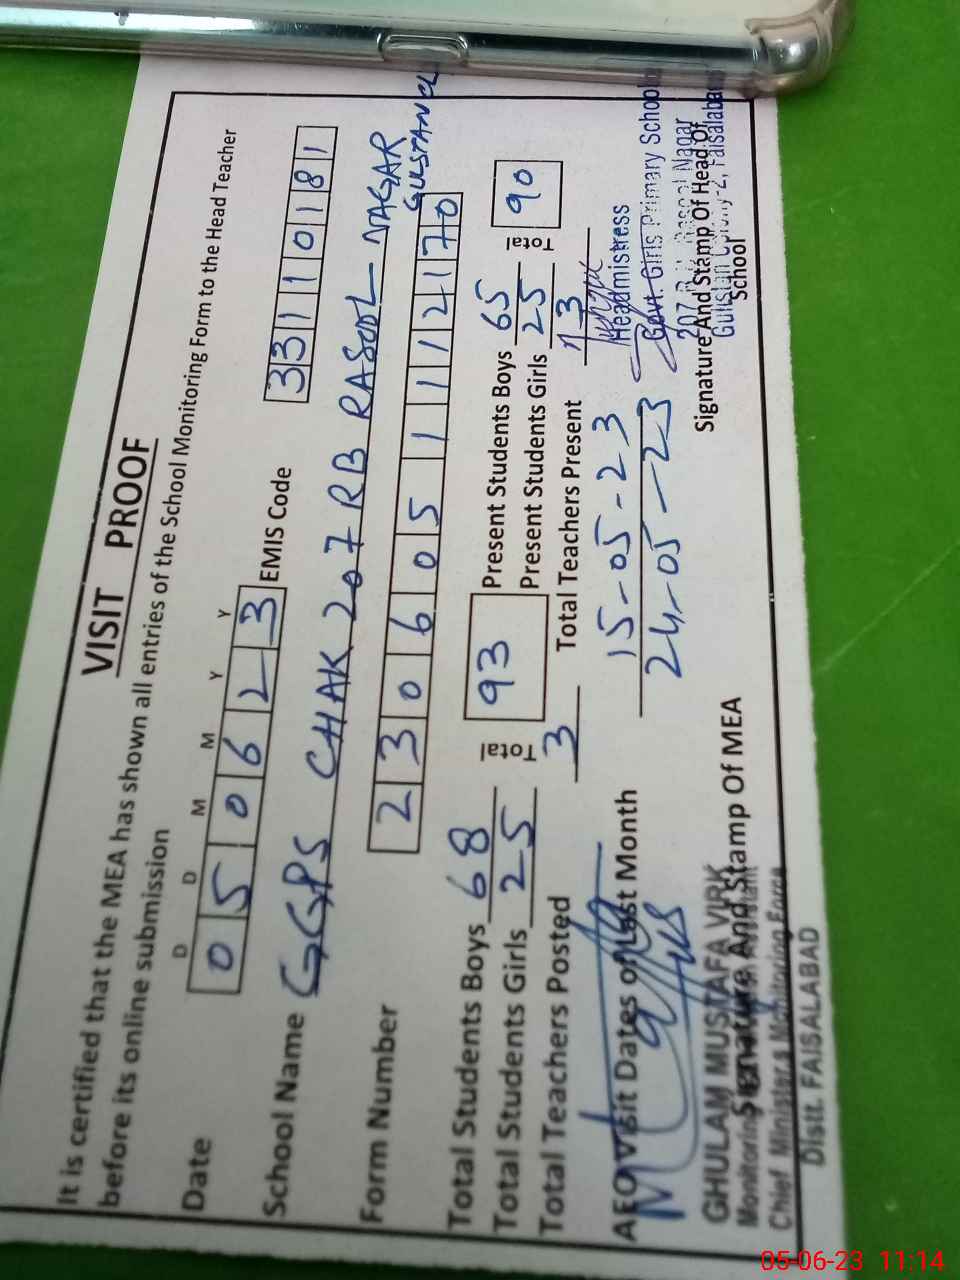 VISIT PROOF
It is certified that the MEA has shown all entries of the School Monitoring Form to the Head Teacher
before its online submission
D D M M Y Y
Date 0 5 0 6 2 3 EMIS Code 3 3 1 1 0 1 8 1
School Name GGPS CHAK 207 RB RASOOL NAGAR
GULSTAN CL
Form Number 2 3 0 6 0 5 1 1 1 2 1 7 0
Total Students Boys 68 Total 93 Present Students Boys 65 Total 90
Total Students Girls 25 Present Students Girls 25
Total Teachers Posted 3 Total Teachers Present 3
AEO Visit Dates of Last Month 15-05-23
24-05-23
Headmistress
Govt. Girls Primary School
207 R.B. Rasool Nagar
Gulistan Colony-2, Faisalabad
Signature And Stamp Of Head Of
School
GHULAM MUSTAFA VIRK
Signature And Stamp Of MEA
Monitoring Assistant
Chief Minister's Monitoring Force
Distt. FAISALABAD
05-06-23 11:14